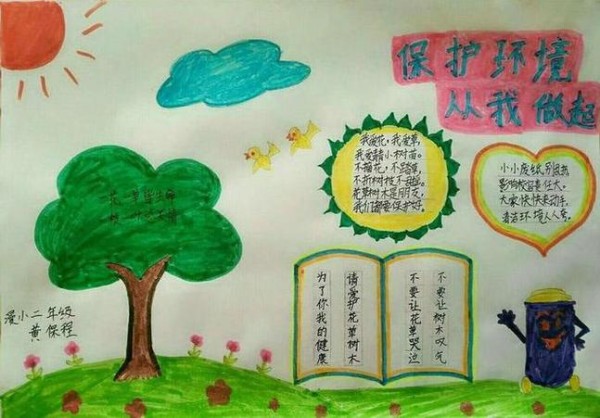 保护环境
从我做起
我爱花,我爱草,
我爱青青小树苗。
不摘花,不踏草,
不折树枝不
花草树木是朋友,
我们都要保护好。
小小废纸,别
影响校容责任大。
大家快快来动手,
清洁环境人人
花一草皆生命
树一叶
请爱护花草树木
为了你我的健康
不要让树木叹气
不要让花草哭泣
小二年级
黄保程